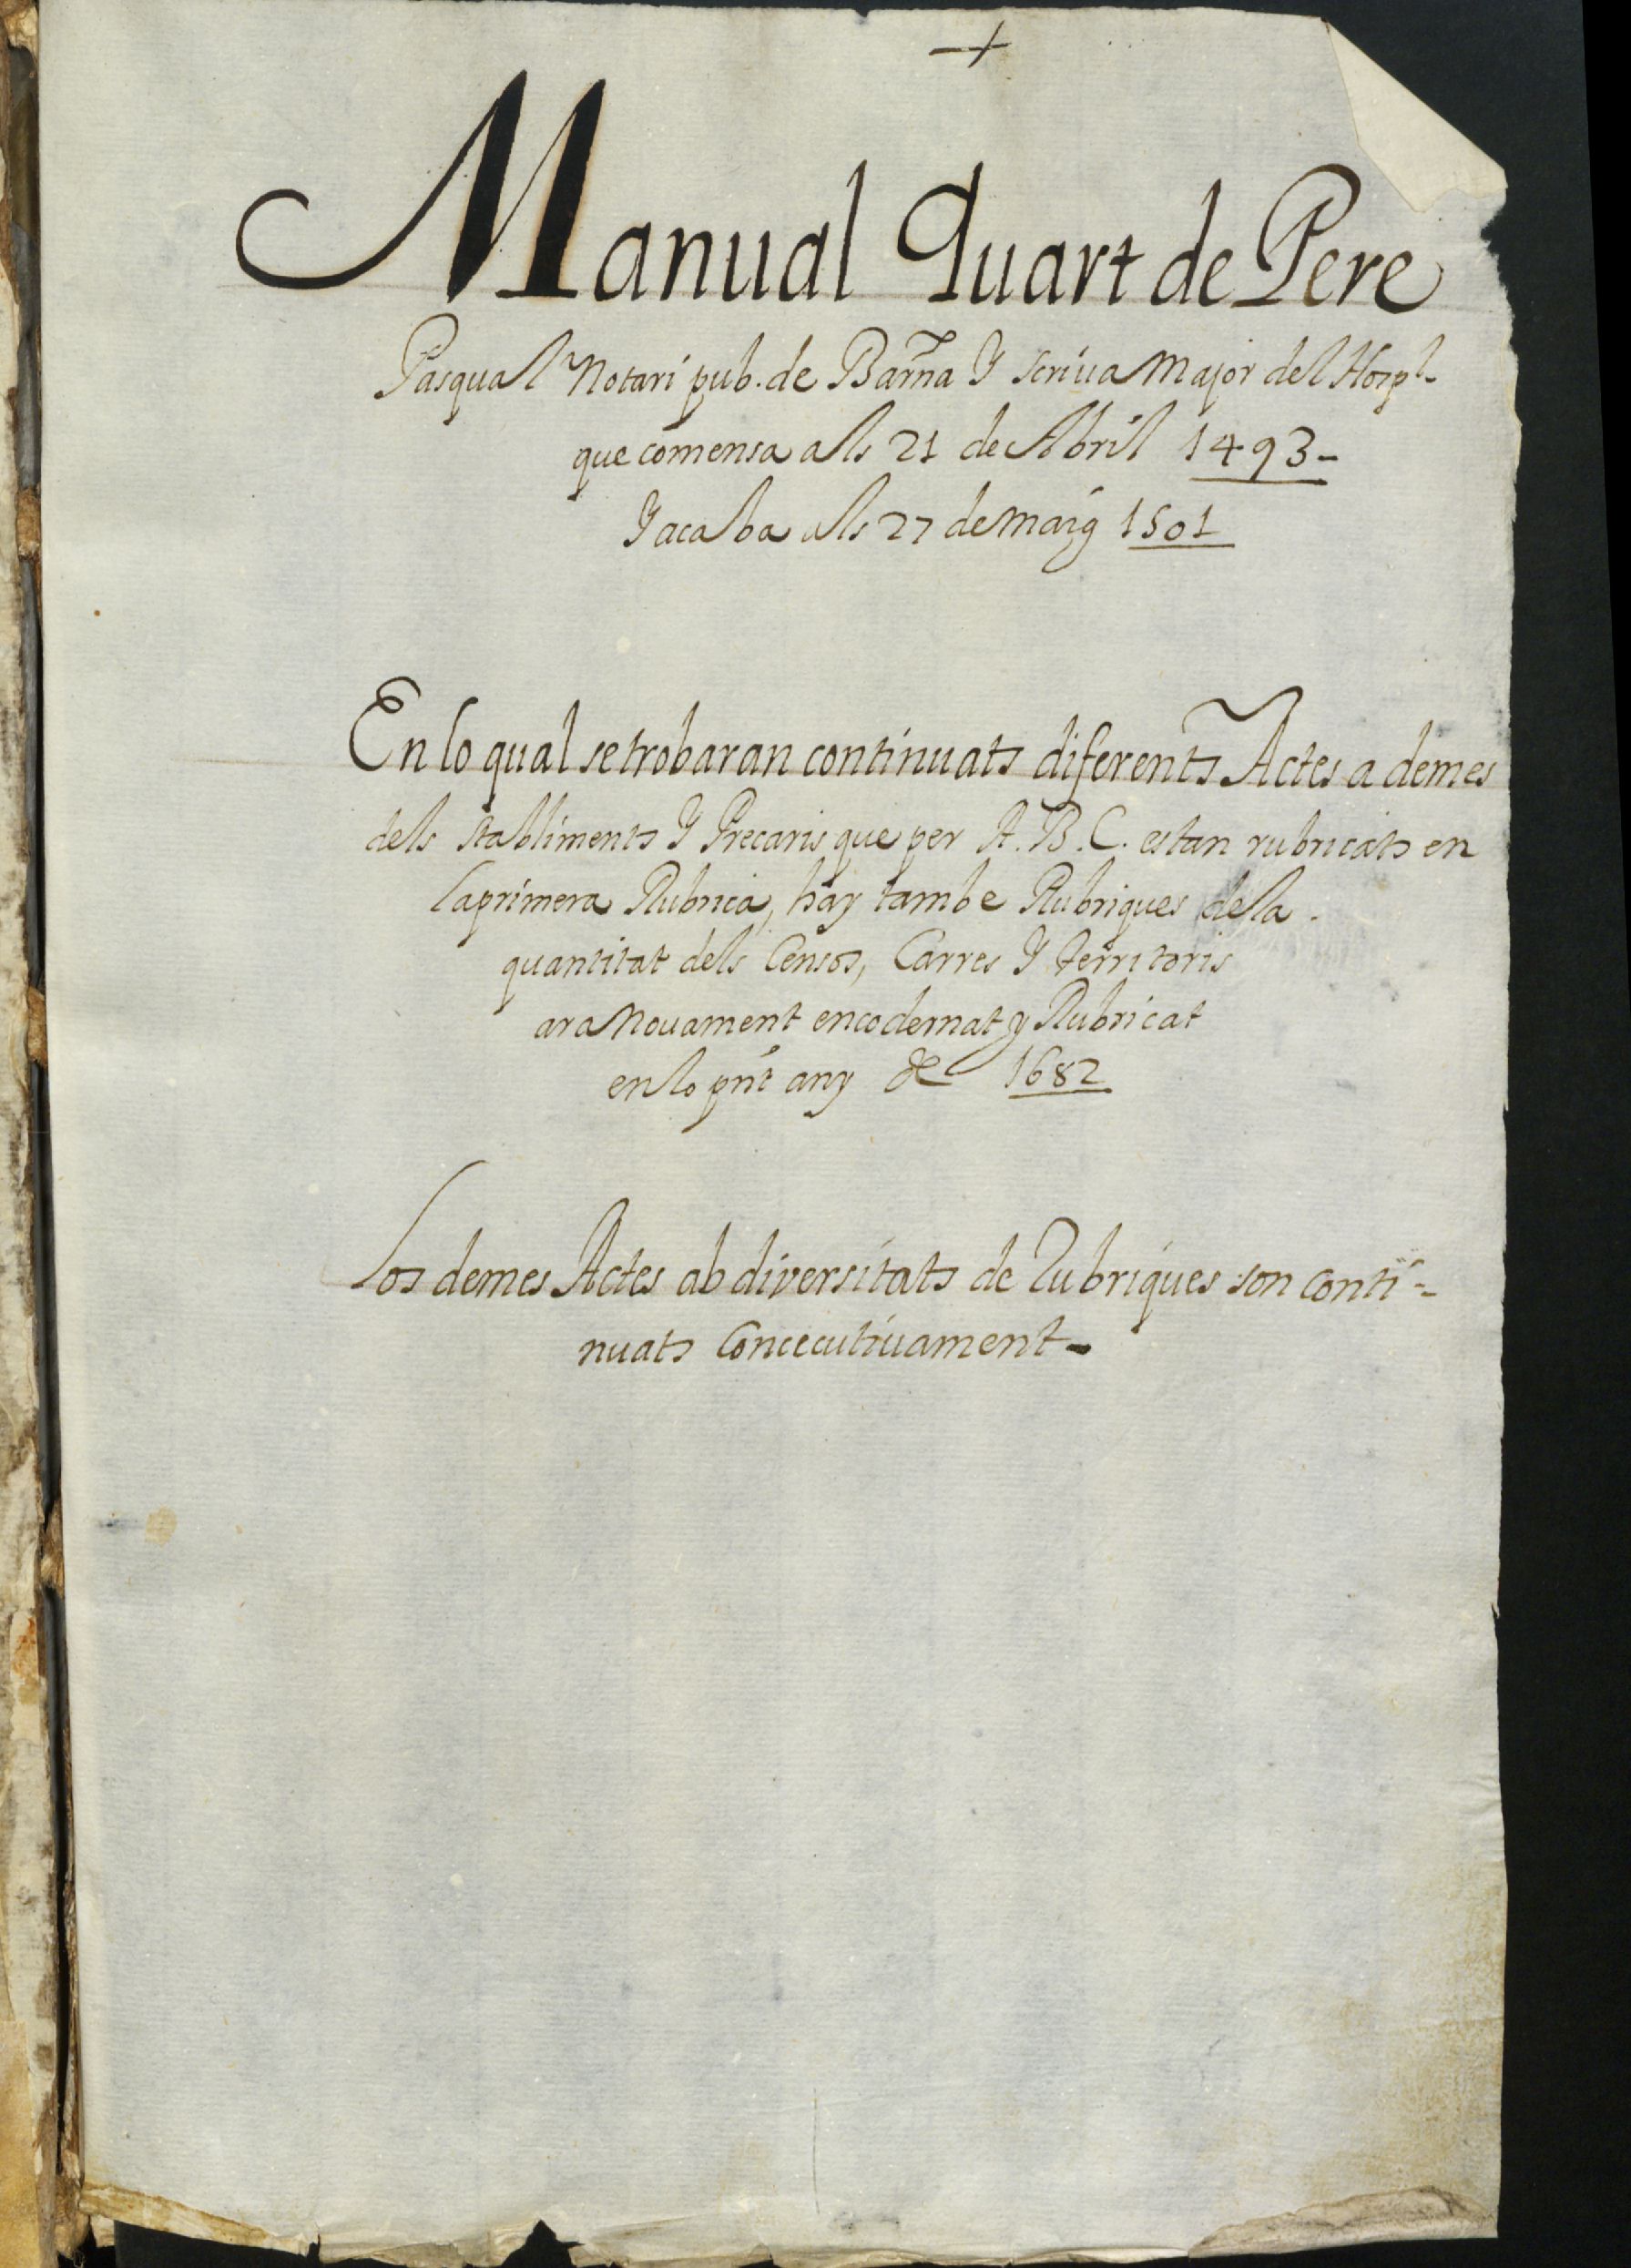 +
Manual Quart de Pere
Pasqual Notari pub. de Barña Y scriua Major del Hospl.
que comensa als 21 de Abril 1493-
Y acaba als 27 de Maig 1501
En lo qual se trobaran continuats diferents Actes a demes
dels stabliments Y Precaris que per A. B. C. estan rubricats en
la primera Rubrica, hay tambe Rubriques de la.
quantitat dels Censos, Carres Y territoris
ara Nouament encodernat y Rubricat
en lo pnt any de 1682
Los demes Actes ab diversitats de Rubriques son conti-
nuats Concecutiuament-